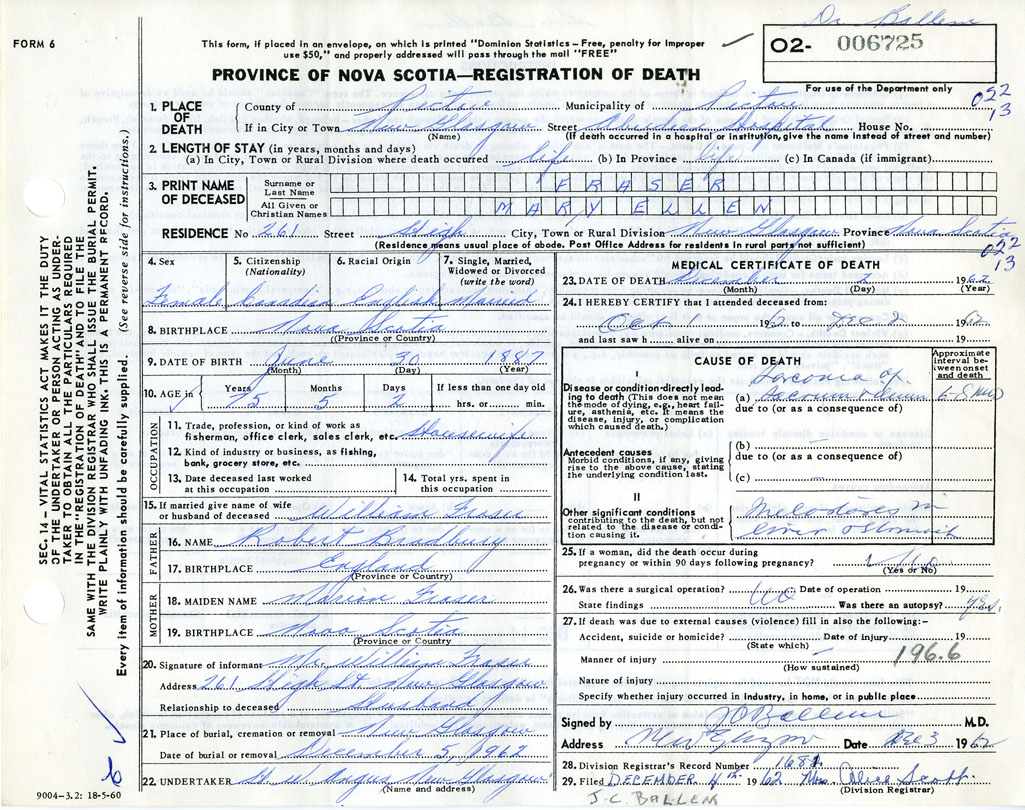 Dr Ballem
FORM 6
This form, if placed in an envelope, on which is printed "Dominion Statistics – Free, penalty for improper
use $50," and properly addressed will pass through the mail "FREE"
O2- 006725
PROVINCE OF NOVA SCOTIA—REGISTRATION OF DEATH
For use of the Department only
022
13
1. PLACE OF DEATH
County of Pictou Municipality of Pictou
If in City or Town New Glasgow Street Aberdeen Hospital House No.
(Name) (If death occurred in a hospital or institution, give the name instead of street and number)
2. LENGTH OF STAY (in years, months and days)
(a) In City, Town or Rural Division where death occurred life (b) In Province life (c) In Canada (if immigrant)
3. PRINT NAME OF DECEASED
Surname or Last Name FRASER
All Given or Christian Names MARY ELLEN
RESIDENCE No 261 Street High City, Town or Rural Division New Glasgow Province Nova Scotia
(Residence means usual place of abode. Post Office Address for residents in rural parts not sufficient)
022
13
4. Sex
Female
5. Citizenship (Nationality)
Canadian
6. Racial Origin
English
7. Single, Married, Widowed or Divorced (write the word)
Married
8. BIRTHPLACE Nova Scotia
(Province or Country)
9. DATE OF BIRTH June 30 1887
(Month) (Day) (Year)
10. AGE in
Years Months Days If less than one day old
75 5 2 hrs. or min.
OCCUPATION
11. Trade, profession, or kind of work as
fisherman, office clerk, sales clerk, etc. Housewife
12. Kind of industry or business, as fishing,
bank, grocery store, etc.
13. Date deceased last worked
at this occupation
14. Total yrs. spent in
this occupation
15. If married give name of wife
or husband of deceased William Fraser
FATHER
16. NAME Robert Bradbury
17. BIRTHPLACE England
(Province or Country)
MOTHER
18. MAIDEN NAME Marion Fraser
19. BIRTHPLACE Nova Scotia
(Province or Country)
20. Signature of informant Mr. William Fraser
Address 261 High St New Glasgow
Relationship to deceased Husband
21. Place of burial, cremation or removal New Glasgow
Date of burial or removal December 5, 1962
22. UNDERTAKER H. W. Angus New Glasgow
(Name and address)
MEDICAL CERTIFICATE OF DEATH
23. DATE OF DEATH December 2 1962
(Month) (Day) (Year)
24. I HEREBY CERTIFY that I attended deceased from:
Oct 1 1962 to Dec 2 1962
and last saw h alive on 19
CAUSE OF DEATH
Approximate interval between onset and death
I
Disease or condition directly leading to death (This does not mean the mode of dying, e.g., heart failure, asthenia, etc. It means the disease, injury, or complication which caused death.)
Sarcoma of
(a)
due to (or as a consequence of)
Antecedent causes
Morbid conditions, if any, giving rise to the above cause, stating the underlying condition last.
(b) —
due to (or as a consequence of)
(c) —
II
Other significant conditions
contributing to the death, but not related to the disease or condition causing it.
in
liver
25. If a woman, did the death occur during
pregnancy or within 90 days following pregnancy? No
(Yes or No)
26. Was there a surgical operation? No Date of operation 19
State findings Was there an autopsy? Yes.
27. If death was due to external causes (violence) fill in also the following:–
Accident, suicide or homicide? Date of injury 19
(State which)
Manner of injury 196.6
(How sustained)
Nature of injury
Specify whether injury occurred in industry, in home, or in public place
Signed by J C Ballem M.D.
Address New Glasgow Date Dec 3 1962
28. Division Registrar's Record Number 1681
29. Filed DECEMBER 4th 1962 Mrs. Alice Scott.
(Division Registrar)
J.C. BALLEM
SEC. 14 – VITAL STATISTICS ACT MAKES IT THE DUTY
OF THE UNDERTAKER OR PERSON ACTING AS UNDER-
TAKER TO OBTAIN ALL THE PARTICULARS REQUIRED
IN THE "REGISTRATION OF DEATH" AND TO FILE THE
SAME WITH THE DIVISION REGISTRAR WHO SHALL ISSUE THE BURIAL PERMIT.
WRITE PLAINLY WITH UNFADING INK. THIS IS A PERMANENT RECORD.
Every item of information should be carefully supplied. (See reverse side for instructions.)
9004–3.2: 18-5-60